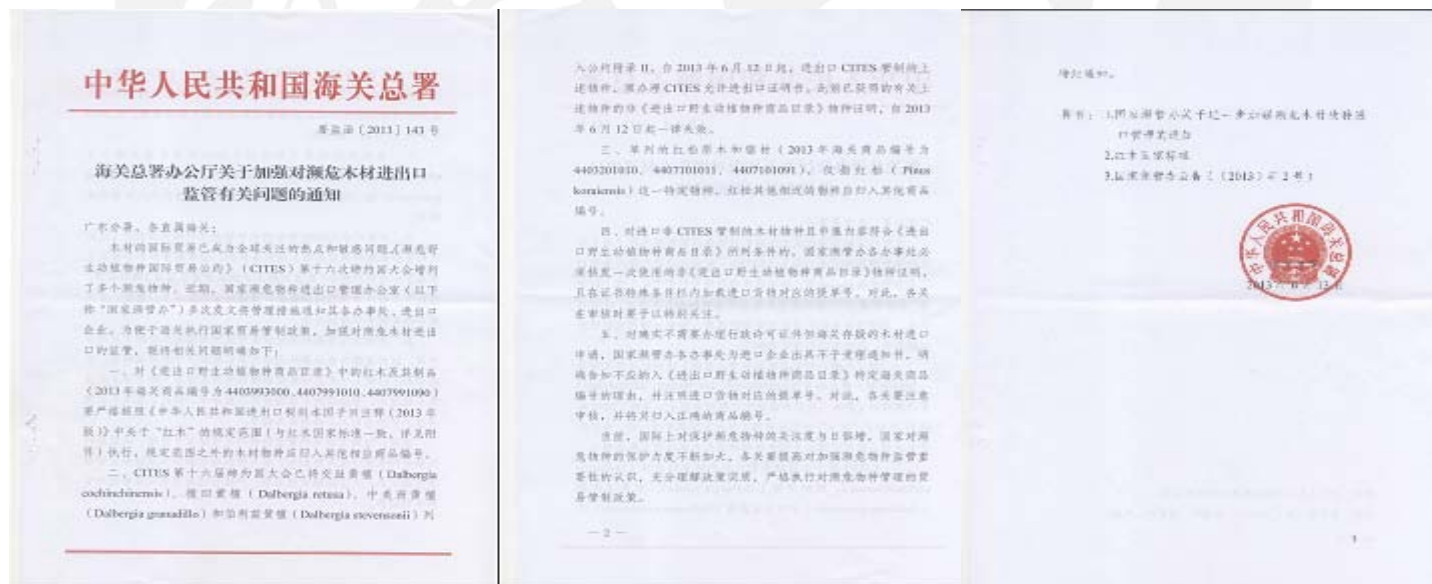 中华人民共和国海关总署
署监函〔2013〕143 号
海关总署办公厅关于加强对濒危木材进出口
监管有关问题的通知
广东分署，各直属海关：
木材的国际贸易已成为全球关注的热点和敏感问题，《濒危野
生动植物种国际贸易公约》（CITES）第十六次缔约国大会增列
了多个濒危物种。近期，国家濒危物种进出口管理办公室（以下
称“国家濒管办”）多次发文将管理措施通知其各办事处、进出口
企业。为便于海关执行国家贸易管制政策，加强对濒危木材进出
口的监管，现将相关问题明确如下：
一、对《进出口野生动植物种商品目录》中的红木及其制品
（2013 年海关商品编号为 4403993000、4407991010、4407991090）
要严格按照《中华人民共和国进出口税则本国子目注释（2013 年
版）》中关于“红木”的规定范围（与红木国家标准一致，详见附
件）执行，规定范围之外的木材物种应归入其他相应商品编号。
二、CITES 第十六届缔约国大会已将交趾黄檀（Dalbergia
cochinchinensis）、微凹黄檀（Dalbergia retusa）、中美洲黄檀
（Dalbergia granadillo）和伯利兹黄檀（Dalbergia stevensonii）列
入公约附录 II，自 2013 年 6 月 12 日起，进出口 CITES 管制的上
述物种，须办理 CITES 允许进出口证明书，此前已获得的有关上
述物种的非《进出口野生动植物种商品目录》物种证明，自 2013
年 6 月 12 日起一律失效。
三、单列的红松原木和锯材（2013 年海关商品编号为
4403201010、4407101011、4407101091），仅指红松（Pinus
koraiensis）这一特定物种，红松其他相近的物种应归入其他商品
编号。
四、对进口非 CITES 管制的木材物种且申报内容符合《进出
口野生动植物种商品目录》所列条件的，国家濒管办各办事处必
须核发一次使用的非《进出口野生动植物种商品目录》物种证明，
且在证书特殊条件栏内加载进口货物对应的提单号。对此，各关
在审核时要予以特别关注。
五、对确实不需要办理行政许可证件但海关存疑的木材进口
申请，国家濒管办各办事处为进口企业出具不予受理通知书，明
确告知不应归入《进出口野生动植物种商品目录》特定海关商品
编号的理由，并注明进口货物对应的提单号。对此，各关要注意
审核，并将其归入正确的商品编号。
当前，国际上对保护濒危物种的关注度与日俱增，国家对濒
危物种的保护力度不断加大。各关要提高对加强濒危物种监管重
要性的认识，充分理解政策实质，严格执行对濒危物种管理的贸
易管制政策。
— 2 —
特此通知。
附件：1.国家濒管办关于进一步加强濒危木材物种进
口管理的通知
2.红木国家标准
3.国家濒管办公告（（2013）年 2 号）
中华人民共和国海关总署
2013 年 6 月 13 日